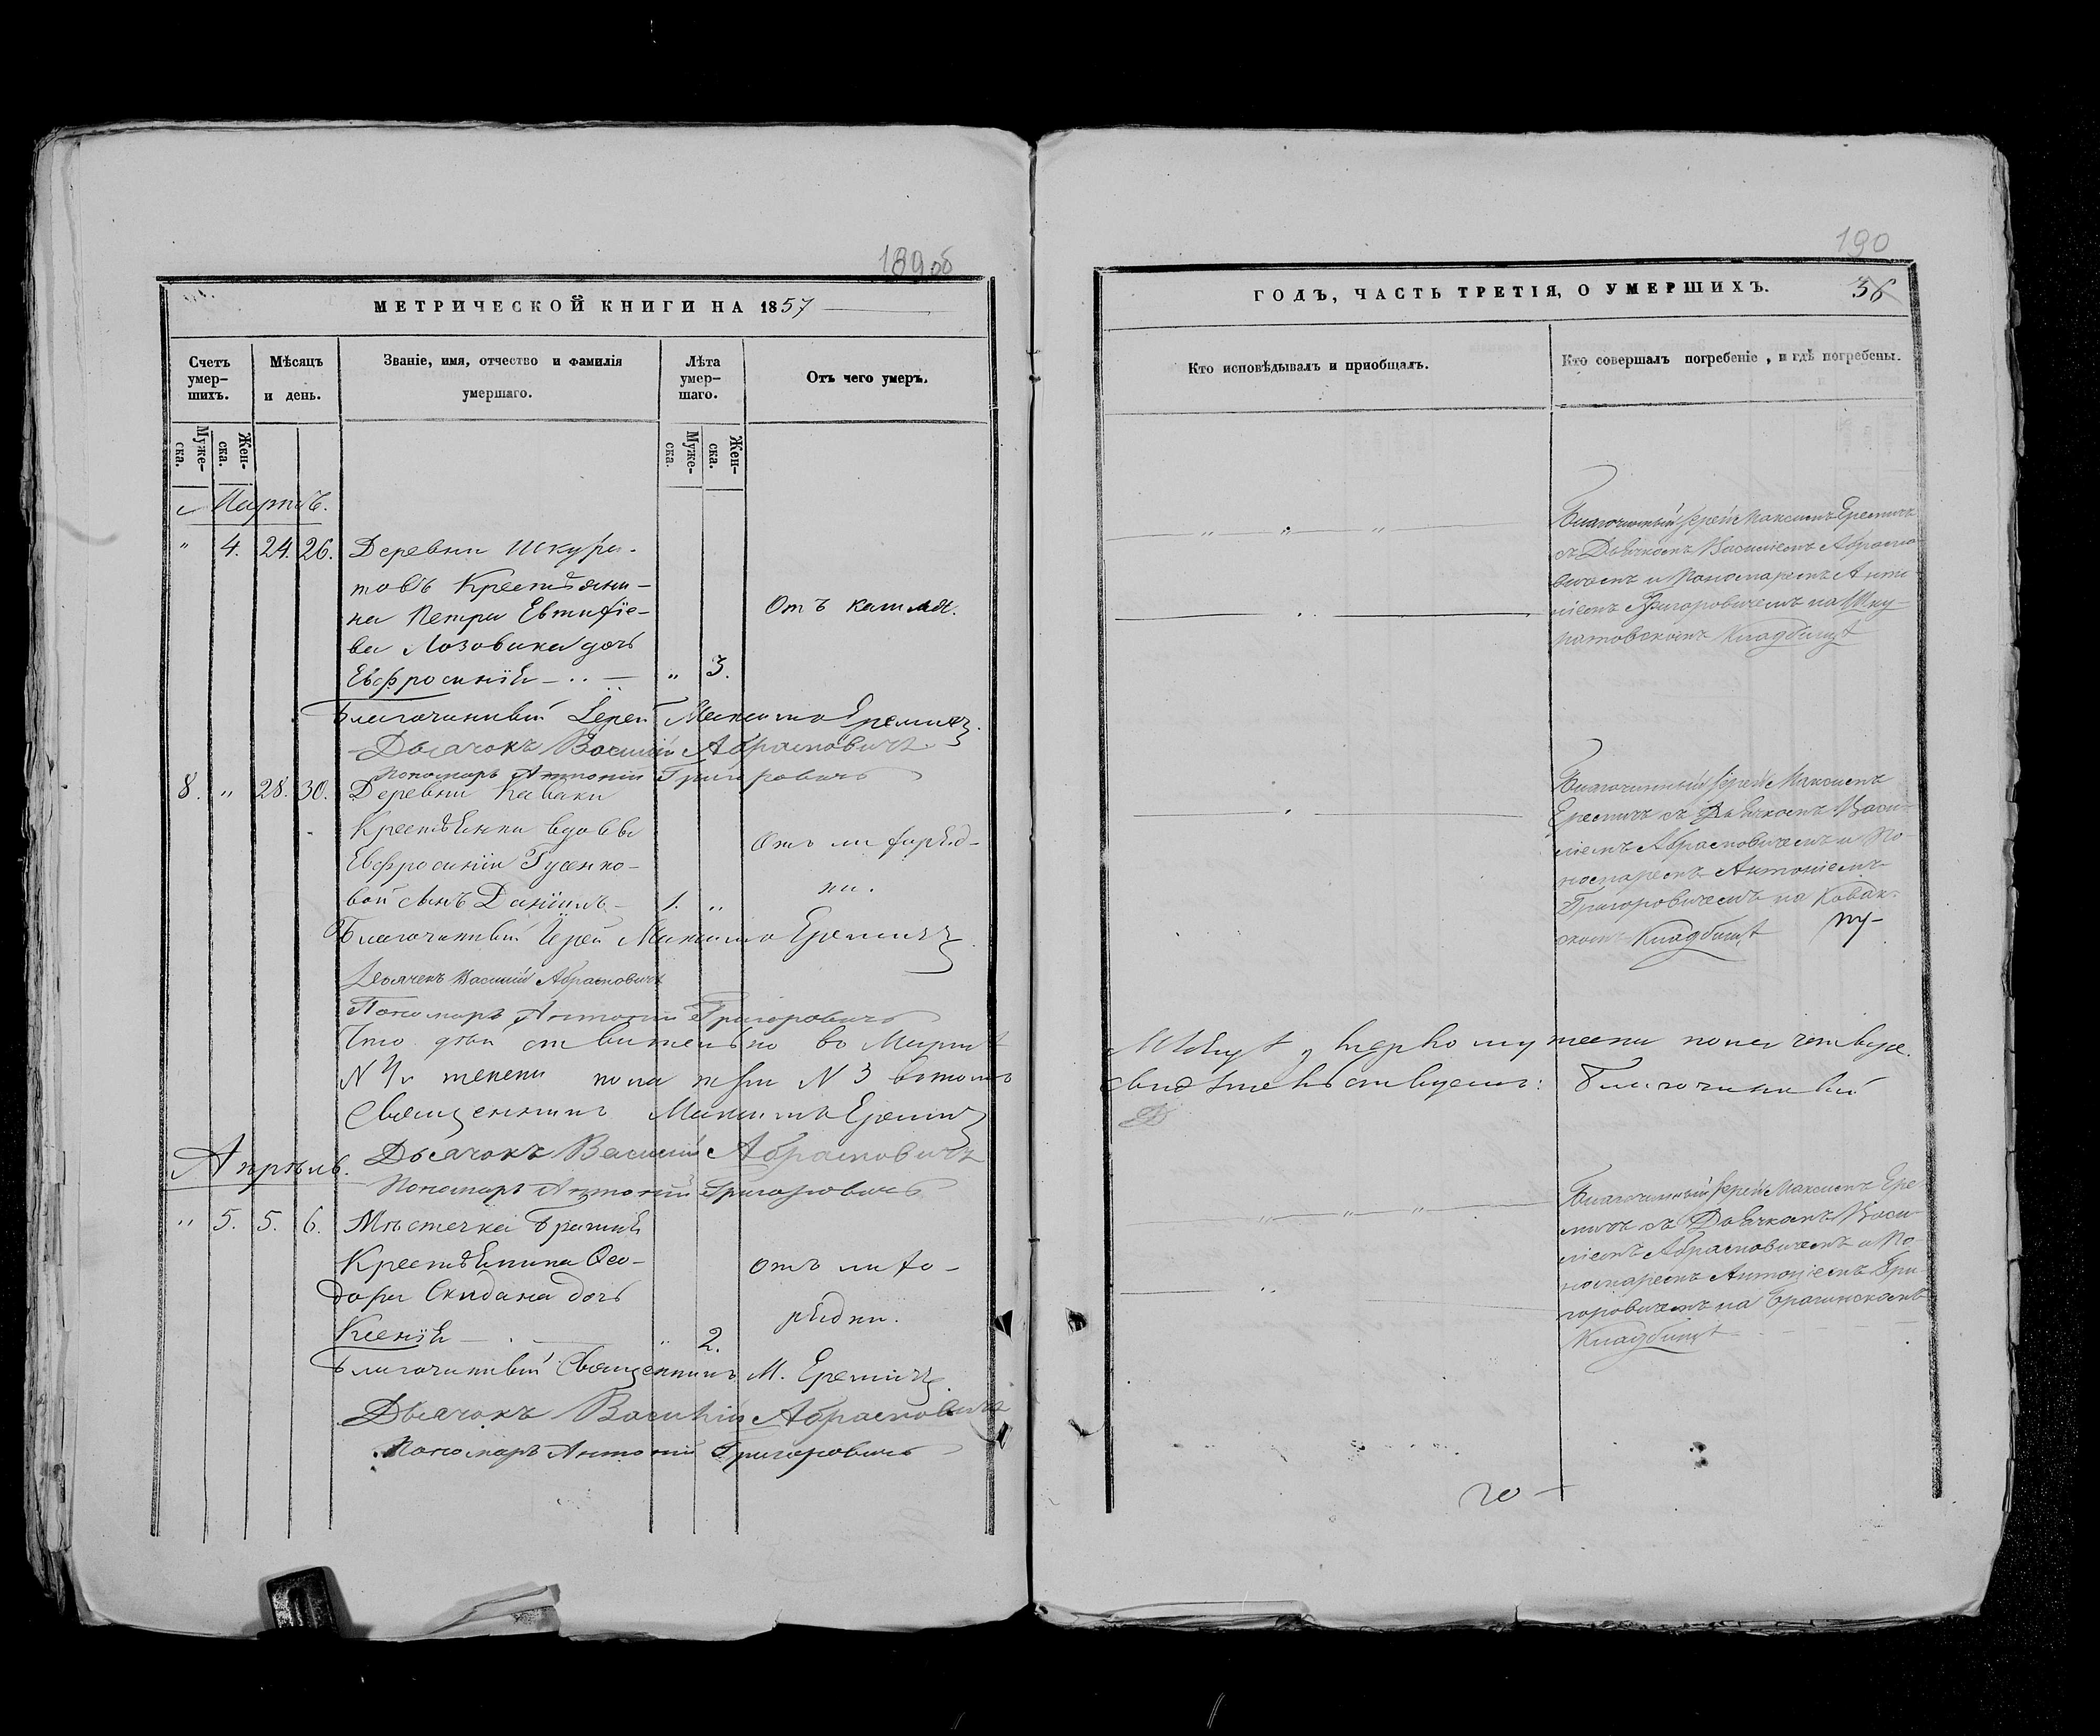 189 об
МЕТРИЧЕСКОЙ КНИГИ НА 1857
Счетъ умер-шихъ.
Мѣсяцъ и день.
Званіе, имя, отчество и фамилія умершаго.
Лѣта умер-шаго.
Отъ чего умеръ.
Муже-ска.
Жен-ска.
Муже-ска.
Жен-ска.
Мартъ.
" 4. 24. 26. Деревни Шкура-
товъ Крестьяни-
на Петра Евтифіе-
ва Лозовика дочь
Отъ кашля.
Евфросинія " 3.
Благочинный Іерей Максимъ Еремичъ
Дьячокъ Василій Абрамовичъ
Пономарь Антоній Григоровичъ
8. " 28. 30. Деревни Каваки
Крестьянки вдовы
Евфросиніи Гусенко-
вой сынъ Даніилъ 1. "
Отъ лихорад-
ки.
Благочинный Іерей Максимъ Еремичъ
Дьячекъ Василій Абрамовичъ
Пономарь Антоній Григоровичъ
Что действительно въ Мартѣ
Священникъ Максимъ Еремичъ
Дьячокъ Василій Абрамовичъ
Апрѣль.
Пономарь Антоній Григоровичъ
" 5. 5. 6. Мѣстечка Брагинѣ
Крестьянина Ѳео-
дора Скидана дочь
Ксенія " 2.
отъ лихо-
радки.
Благочинный Священникъ М. Еремичъ
Дьячокъ Василій Абрамовичъ
Пономарь Антоній Григоровичъ
190
ГОДЪ, ЧАСТЬ ТРЕТІЯ, О УМЕРШИХЪ.
36
Кто исповѣдывалъ и приобщалъ.
Кто совершалъ погребеніе, и гдѣ погребены.
Благочинный Іерей Максимъ Еремичъ
съ Дьячкомъ Василіемъ Абрамо
вичемъ и Пономаремъ Анто
ніемъ Григоровичемъ на Шку-
ратовскомъ Кладбищѣ
Благочинный Іерей Максимъ
Еремичъ съ Дьячкомъ Васи-
ліемъ Абрамовичемъ и По-
номаремъ Антоніемъ
Григоровичемъ на Кавак-
скомъ Кладбищѣ
свидѣтельствуемъ: Благочинный
Благочинный Іерей Максимъ Ере
мичъ съ Дьячкомъ Васи-
ліемъ Абрамовичемъ и По-
номаремъ Антоніемъ Гри-
горовичемъ на Брагинскомъ
Кладбищѣ